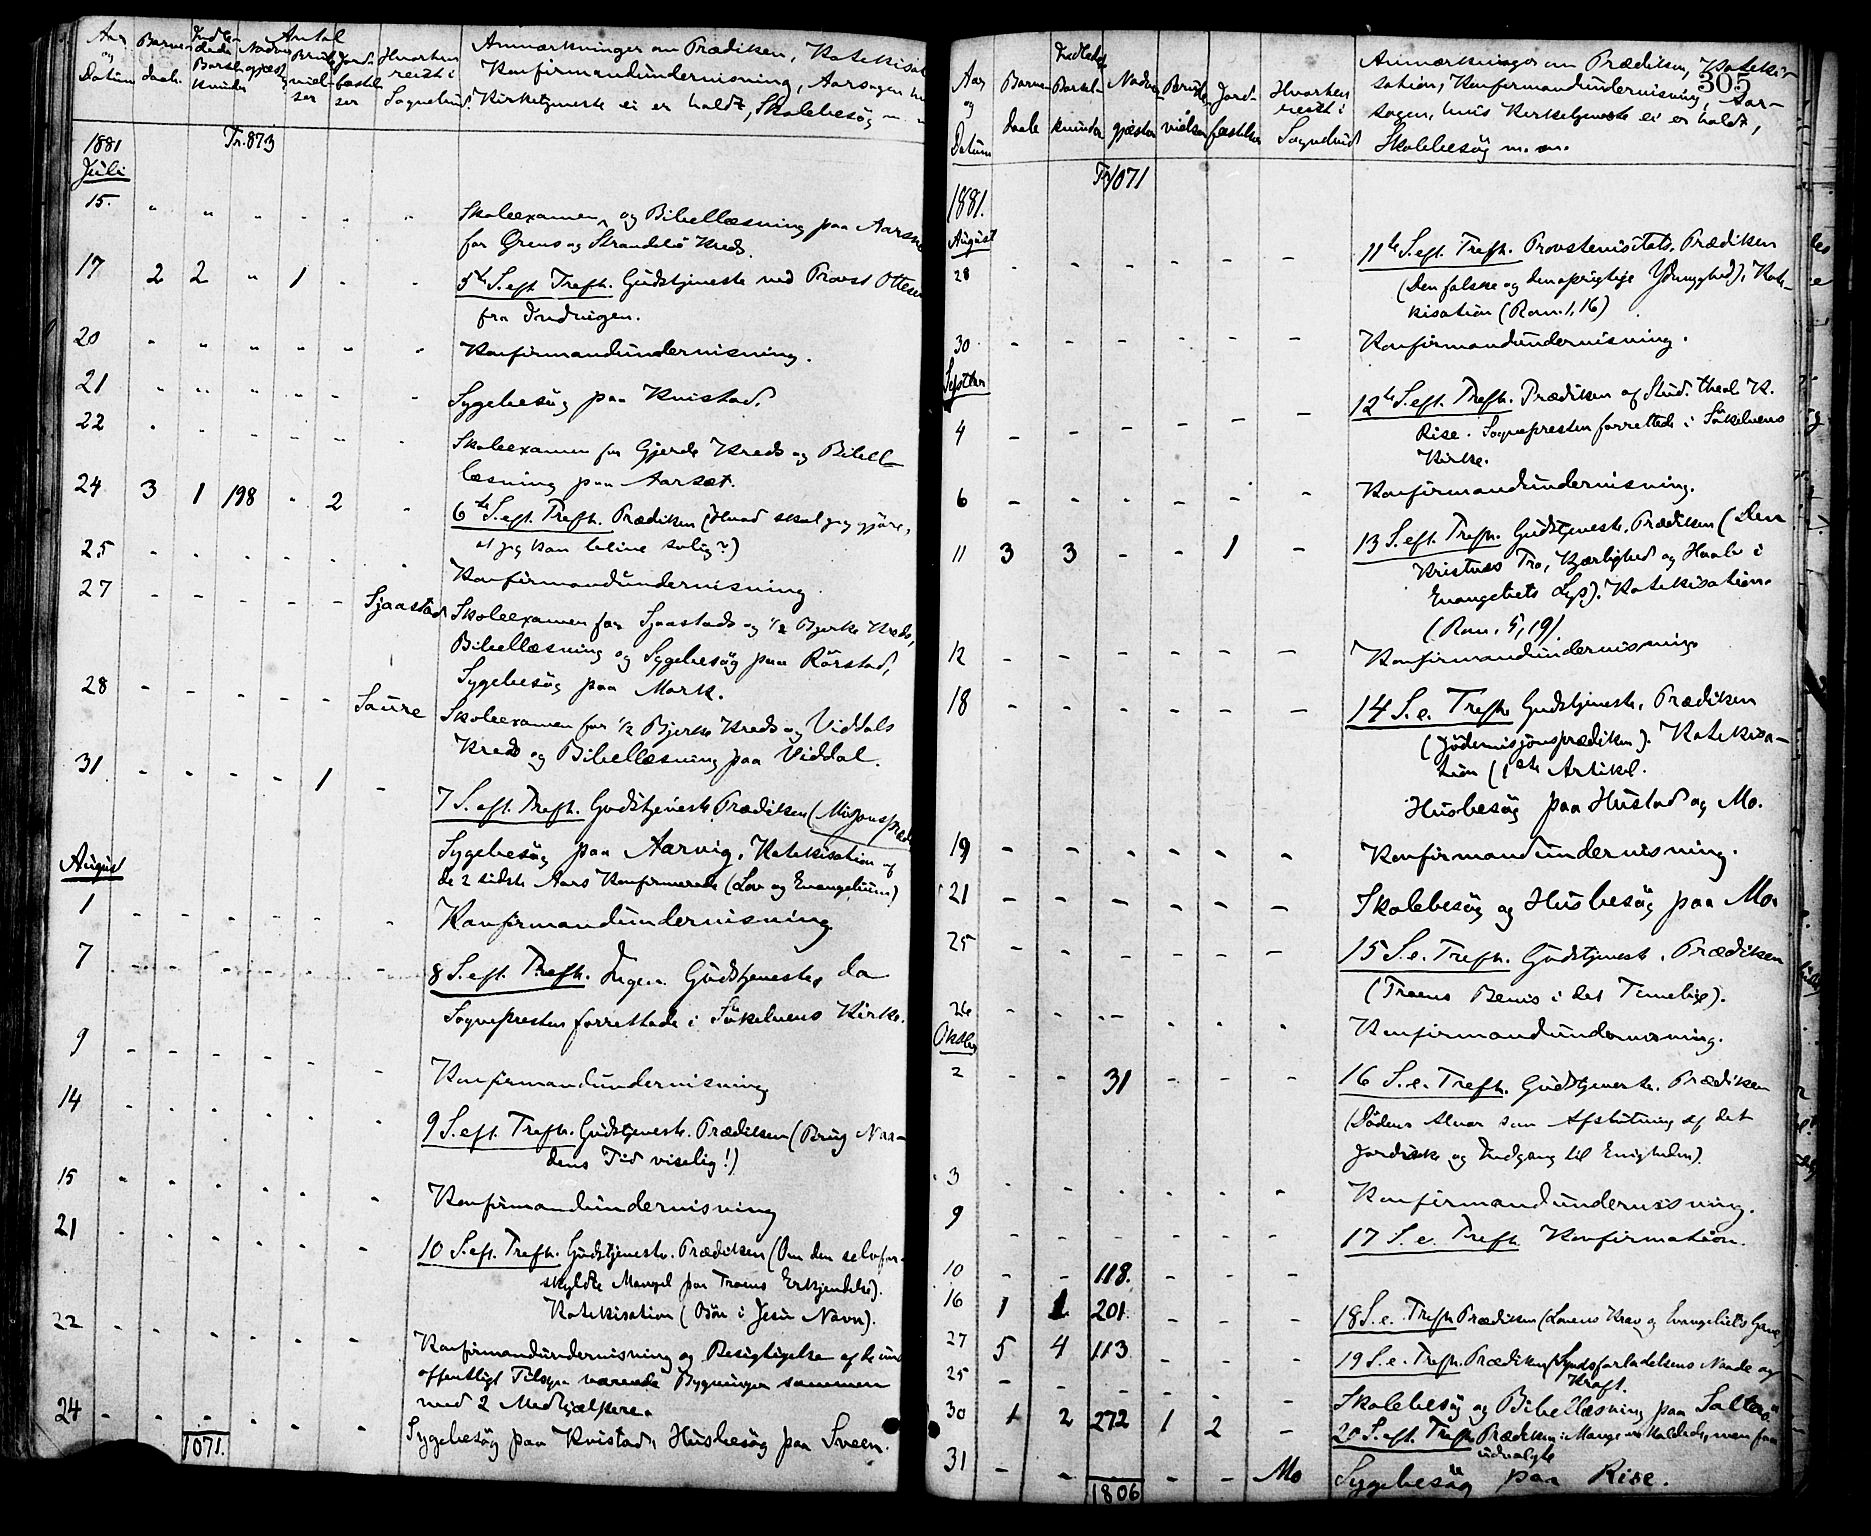 Aar og Datum
Barne- daab.
Indle- dede Barsel- kvinder
Nadver- gjæster
Antal
Brude- viel- ser
Jord- fæstel- ser
Hvorhen reist i Sognebud.
Anmærkninger om Prædiken, Katekisat
Konfirmandundervisning, Aarsagen hv
Kirketjeneste ei er holdt, Skolebesøg m. m
1881 Tr. 873
Juli
15. " " " " " " Skoleexamen og Bibellæsning paa Aarsne
for Ørens og Strandebø Kreds.
17 2 2 " 1 " " 5te S. eft. Trefh. Gudstjeneste ved Provst Ottesen
fra Indvigen.
20 " " " " " " Konfirmandundervisning.
21 " " " " " " Sygebesøg paa Kvistad.
22 " " " " " " Skoleexamen for Gjerde Kreds og Bibel-
læsning paa Aarset.
24 3 1 198 " 2 " 6te S. eft. Trefh. Prædiken (Hvad skal jeg gjøre,
at jeg kan blive salig?)
25 " " " " " " Konfirmandundervisning.
27 - - - - - Sjaastad Skoleexamen for Sjaastads og 1/2 Bjerke Kreds,
Bibellæsning og Sygebesøg paa Rørstad,
Sygebesøg paa Mork.
28 - - - - - Saure Skoleexamen for 1/2 Bjerke Kreds og Viddals
Kreds og Bibellæsning paa Viddal.
31. - - - - 1 - 7 S. eft. Trefh. Gudstjeneste Prædiken (Misjonspræd
Sygebesøg paa Aarvig. Katekisation af
de 2 sidste Aars Konfirmerede (Lov og Evangelium)
August
1 - - - - - - Konfirmandundervisning.
7 - - - - - - 8 S. eft. Trefh. Ingen Gudstjeneste, da
Sognepresten forrettede i Søkelvens Kirke.
9 - - - - - - Konfirmandundervisning
14 - - - - - - 9 S. eft. Trefh. Gudstjeneste. Prædiken (Brug Naa-
dens Tid viselig!)
15 - - - - - - Konfirmandundervisning
21 - - - - - - 10 S. eft. Trefh. Gudstjeneste. Prædiken (Om den selvfor-
skyldte Mangel paa Troens Erkjendelse).
Katekisation (Bøn i Jesu Navn).
22 - - - - - - Konfirmandundervisning og Besigtigelse af de und
offentligt Tilsyn værende Bygninger sammen
med 2 Medhjælpere.
24 - - - - - - Sygebesøg paa Kvistad, Husbesøg paa Sveen.
1071.
305
Aar og Datum
Barne- daab
Indledede Barsel- kvinder
Nadver- gjæster
Brude- vielser
Jord- fæstelser
Hvorhen reist i Sognebud
Anmærkninger om Prædiken, Kateki-
sation, Konfirmandundervisning, Aar-
sagen, hvis Kirketjeneste ei er holdt,
Skolebesøg m. m.
Tr. 1071
1881.
August
28 - - - - - - 11te S. eft. Trefh. Provstevisitats. Prædiken
(Den falske og den oprigtige Ydmyghed). Kate-
kisation (Rom. 1, 16)
30 - - - - - - Konfirmandundervisning.
Septbr
4 - - - - - - 12te S. eft. Trefh. Prædiken af Stud. theol K.
Rise. Sognepresten forrettede i Søkelvens
Kirke.
6 - - - - - - Konfirmandundervisning.
11 3 3 - - 1 - 13 S. eft. Trefh. Gudstjeneste. Prædiken (Den
Kristnes Tro, Kjærlighed og Haab i
Evangeliets Lys). Katekisation.
(Rom. 5, 19).
12 - - - - - - Konfirmandundervisning.
18 - - - - - - 14 S. e. Trefh. Gudstjeneste. Prædiken
(Jødemisjonsprædiken). Katekisa-
tion (1ste Artikel.
Husbesøg paa Hustad og Mo.
19 - - - - - - Konfirmandundervisning.
21 - - - - - - Skolebesøg og Husbesøg paa Mo.
25 - - - - - - 15 S. e. Trefh. Gudstjeneste. Prædiken
(Troens Bevis i det Timelige).
26 - - - - - - Konfirmandundervisning.
Oktober
2 - - 31 - - - 16 S. e. Trefh. Gudstjeneste. Prædiken
(Dødens Alvor som Afslutning af det
Jordiske og Indgang til Evigheden).
3 - - - - - - Konfirmandundervisning.
9 - - - - - - 17 S. e. Trefh Konfirmation.
10 - - 118. - - -
16 1 1 201 - - - 18 S. e. Trefh Prædiken (Lovens Krav og Evangeliets Gave)
27 5 4 113 - - - 19 S. e. Trefh. Prædiken (Syndsforladelsens Naade og
Kraft.
25 - - - - - - Skolebesøg og Bibellæsning paa
30 1 2 272 1 2 - 20 S. eft. Trefh. Prædiken: Mange ere Kaldede, men faa
udvalgte
31 - - - - - Mo Sygebesøg paa Rise.
1806